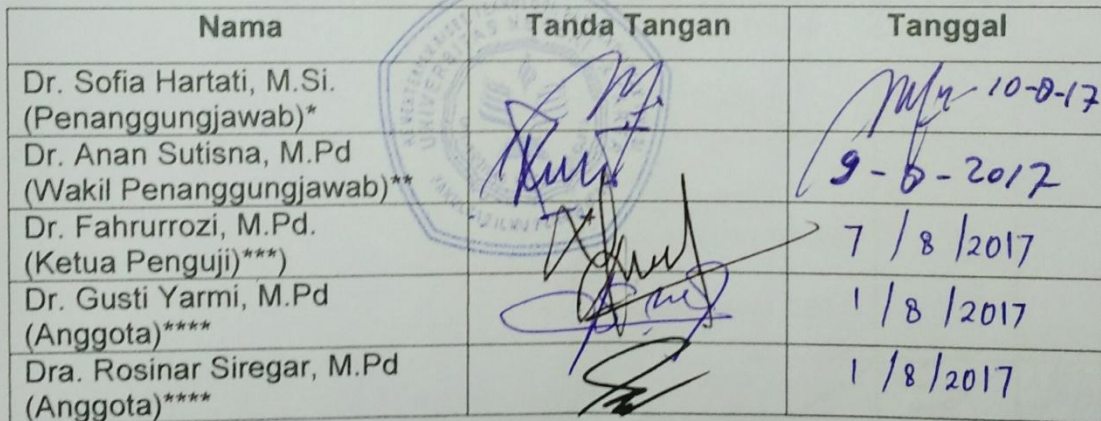 Nama Tanda Tangan Tanggal
Dr. Sofia Hartati, M.Si.
(Penanggungjawab)* 10-8-17
Dr. Anan Sutisna, M.Pd
(Wakil Penanggungjawab)** 9-8-2017
Dr. Fahrurrozi, M.Pd.
(Ketua Penguji)***) 7/8/2017
Dr. Gusti Yarmi, M.Pd
(Anggota)**** 1/8/2017
Dra. Rosinar Siregar, M.Pd
(Anggota)**** 1/8/2017